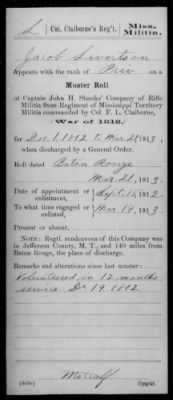 L
Col. Claiborne's Reg't.
Miss. Militia.
Jacob
Appears with the rank of Priv on a
Muster Roll
of Captain John H. Shanks' Company of Rifle
Militia from Regiment of Mississippi Territory
Militia commanded by Col. F. L. Claiborne,
War of 1812,
for Dec. 1 1812 to Mar 28 1813,
when discharged by a General Order.
Roll dated Baton Rouge
Mar. 28, 1813.
Date of appointment or enlistment, Sept. 1812
To what time engaged or enlisted, Mar 19, 1813.
Present or absent,
NOTE: Regtl. rendezvous of this Company was
in Jefferson County, M. T., and 140 miles from
Baton Rouge, the place of discharge.
Remarks and alterations since last muster:
Volunteered in 12 months
service De 19 1812
Metcalf
Copyist.